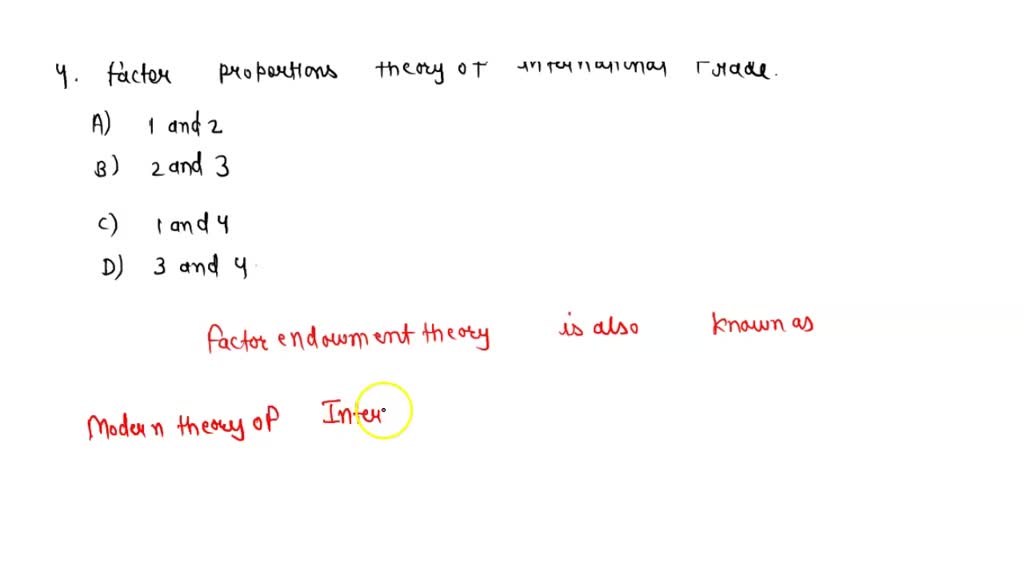 4. factor proportions theory of international Trade.
A) 1 and 2
B) 2 and 3
C) 1 and 4
D) 3 and 4
factor endowment theory is also known as
Modern theory of Inter